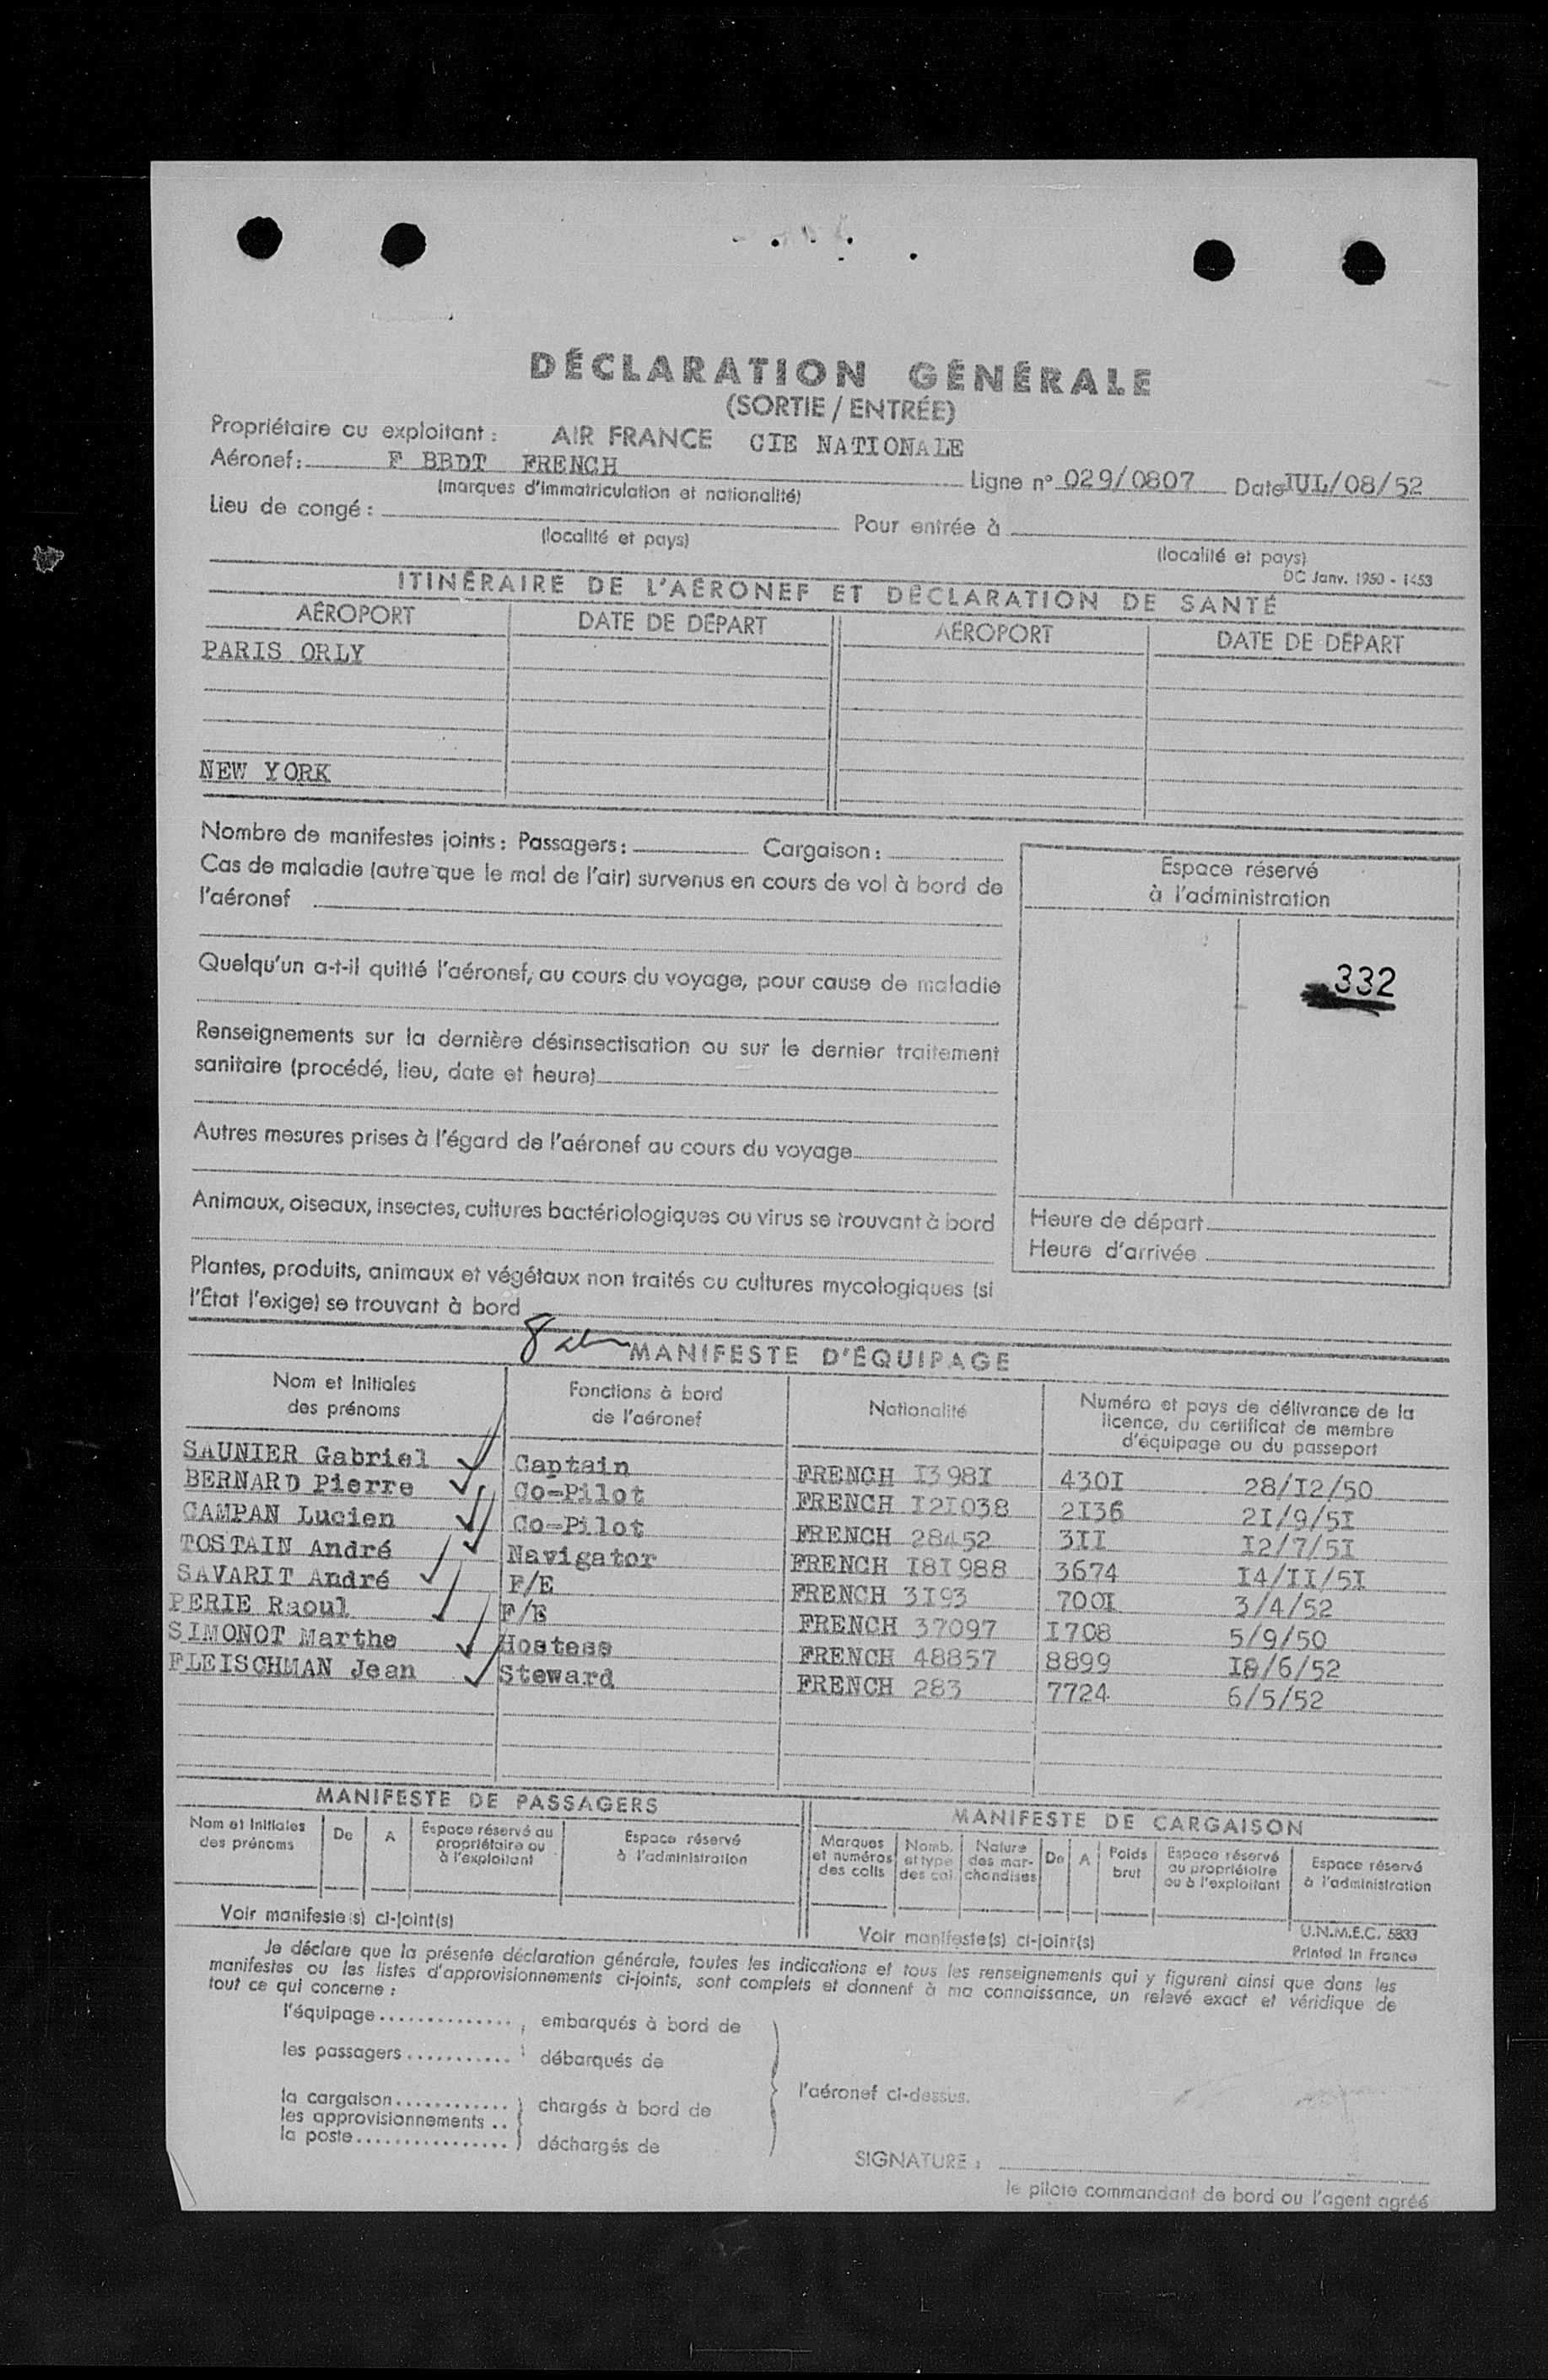 DÉCLARATION GÉNÉRALE
(SORTIE / ENTRÉE)
Propriétaire ou exploitant : AIR FRANCE CIE NATIONALE
Aéronef : F BBDT FRENCH Ligne n° 029/0807 Date JUL/08/52
(marques d'immatriculation et nationalité)
Lieu de congé : Pour entrée à
(localité et pays) (localité et pays)
DC Janv. 1950 - 1453
ITINÉRAIRE DE L'AÉRONEF ET DÉCLARATION DE SANTÉ
AÉROPORT DATE DE DÉPART AÉROPORT DATE DE DÉPART
PARIS ORLY
NEW YORK
Nombre de manifestes joints : Passagers : Cargaison :
Cas de maladie (autre que le mal de l'air) survenus en cours de vol à bord de
l'aéronef
Espace réservé
à l'administration
332
Quelqu'un a-t-il quitté l'aéronef, au cours du voyage, pour cause de maladie
Renseignements sur la dernière désinsectisation ou sur le dernier traitement
sanitaire (procédé, lieu, date et heure)
Autres mesures prises à l'égard de l'aéronef au cours du voyage
Animaux, oiseaux, insectes, cultures bactériologiques ou virus se trouvant à bord
Heure de départ
Heure d'arrivée
Plantes, produits, animaux et végétaux non traités ou cultures mycologiques (si
l'Etat l'exige) se trouvant à bord
8
MANIFESTE D'ÉQUIPAGE
Nom et Initiales des prénoms Fonctions à bord de l'aéronef Nationalité Numéro et pays de délivrance de la licence, du certificat de membre d'équipage ou du passeport
SAUNIER Gabriel Captain FRENCH I398I 430I 28/I2/50
BERNARD Pierre Co-Pilot FRENCH I2I038 2I36 2I/9/5I
CAMPAN Lucien Co-Pilot FRENCH 28452 3II I2/7/5I
TOSTAIN André Navigator FRENCH I8I988 3674 I4/II/5I
SAVARIT André F/E FRENCH 3I93 700I 3/4/52
PERIE Raoul F/E FRENCH 37097 I708 5/9/50
SIMONOT Marthe Hostess FRENCH 48857 8899 /6/52
FLEISCHMAN Jean Steward FRENCH 283 7724 6/5/52
MANIFESTE DE PASSAGERS MANIFESTE DE CARGAISON
Nom et Initiales des prénoms De A Espace réservé au propriétaire ou à l'exploitant Espace réservé à l'administration
Marques et numéros des colis Nomb. et type des col. Nature des mar-chandises De A Poids brut Espace réservé au propriétaire ou à l'exploitant Espace réservé à l'administration
Voir manifeste(s) ci-joint(s) Voir manifeste(s) ci-joint(s)
U.N.M.E.C. 5833
Printed in France
Je déclare que la présente déclaration générale, toutes les indications et tous les renseignements qui y figurent ainsi que dans les
manifestes ou les listes d'approvisionnements ci-joints, sont complets et donnent à ma connaissance, un relevé exact et véridique de
tout ce qui concerne :
l'équipage.............. embarqués à bord de
les passagers........... débarqués de
la cargaison............ chargés à bord de
les approvisionnements ..
la poste................ déchargés de
l'aéronef ci-dessus.
SIGNATURE :
le pilote commandant de bord ou l'agent agréé